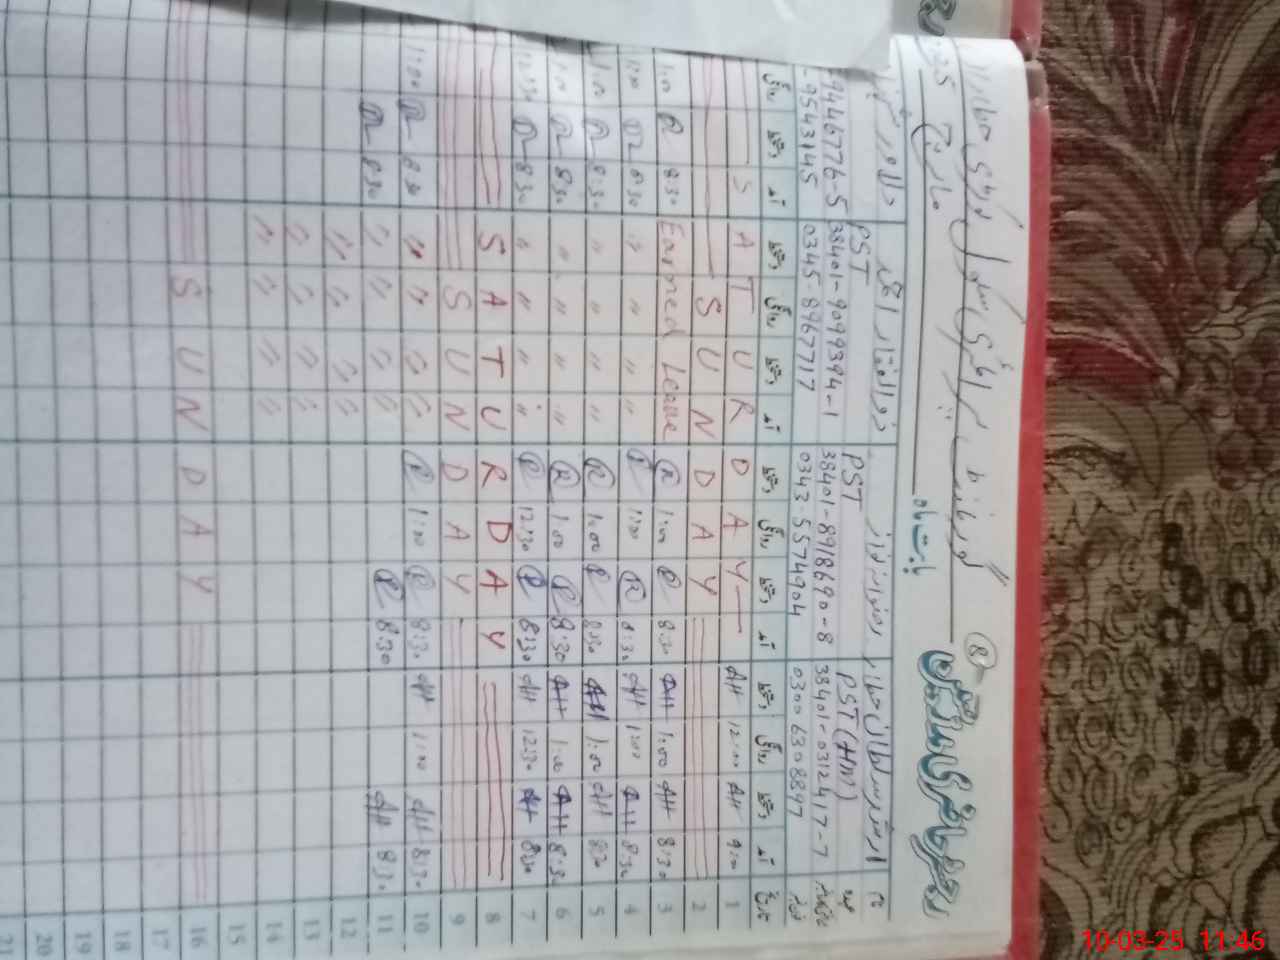 رجسٹر حاضری مدرسین
8
گورنمنٹ پرائمری سکول
بابت ماہ مارچ
نام
PST(HM) PST PST
38401-0312417-7 38401-8918690-8 38401-9099394-1
0300 6308897 0343-5574904 0345-8967717 9543145
تاریخ آمد دستخط روانگی دستخط آمد دستخط روانگی دستخط آمد دستخط روانگی دستخط آمد دستخط روانگی
1 9:00 AH 12:00 AH SATURDAY
2 SUNDAY
3 8:30 AH 1:00 AH 8:30 R 1:00 R Earned Leave 8:30 R 1:00
4 8:30 AH 1:00 AH 8:30 R 1:00 R " " " " 8:30 R 1:00
5 8:30 AH 1:00 AH 8:30 R 1:00 R " " " " 8:30 R 1:00
6 8:30 AH 1:00 AH 8:30 R 1:00 R " " " " 8:30 R 1:00
7 8:30 AH 12:30 AH 8:30 R 12:30 R " " " " 8:30 R 12:30
8 SATURDAY
9 SUNDAY
10 8:30 AH 1:00 AH 8:30 R 1:00 R " " " " 8:30 R 1:00
11 8:30 AH 8:30 R " " " " 8:30 R
12 " " " "
13 " " " "
14 " " " "
15
16 SUNDAY
17
18
19
20
21
10-03-25 11:46